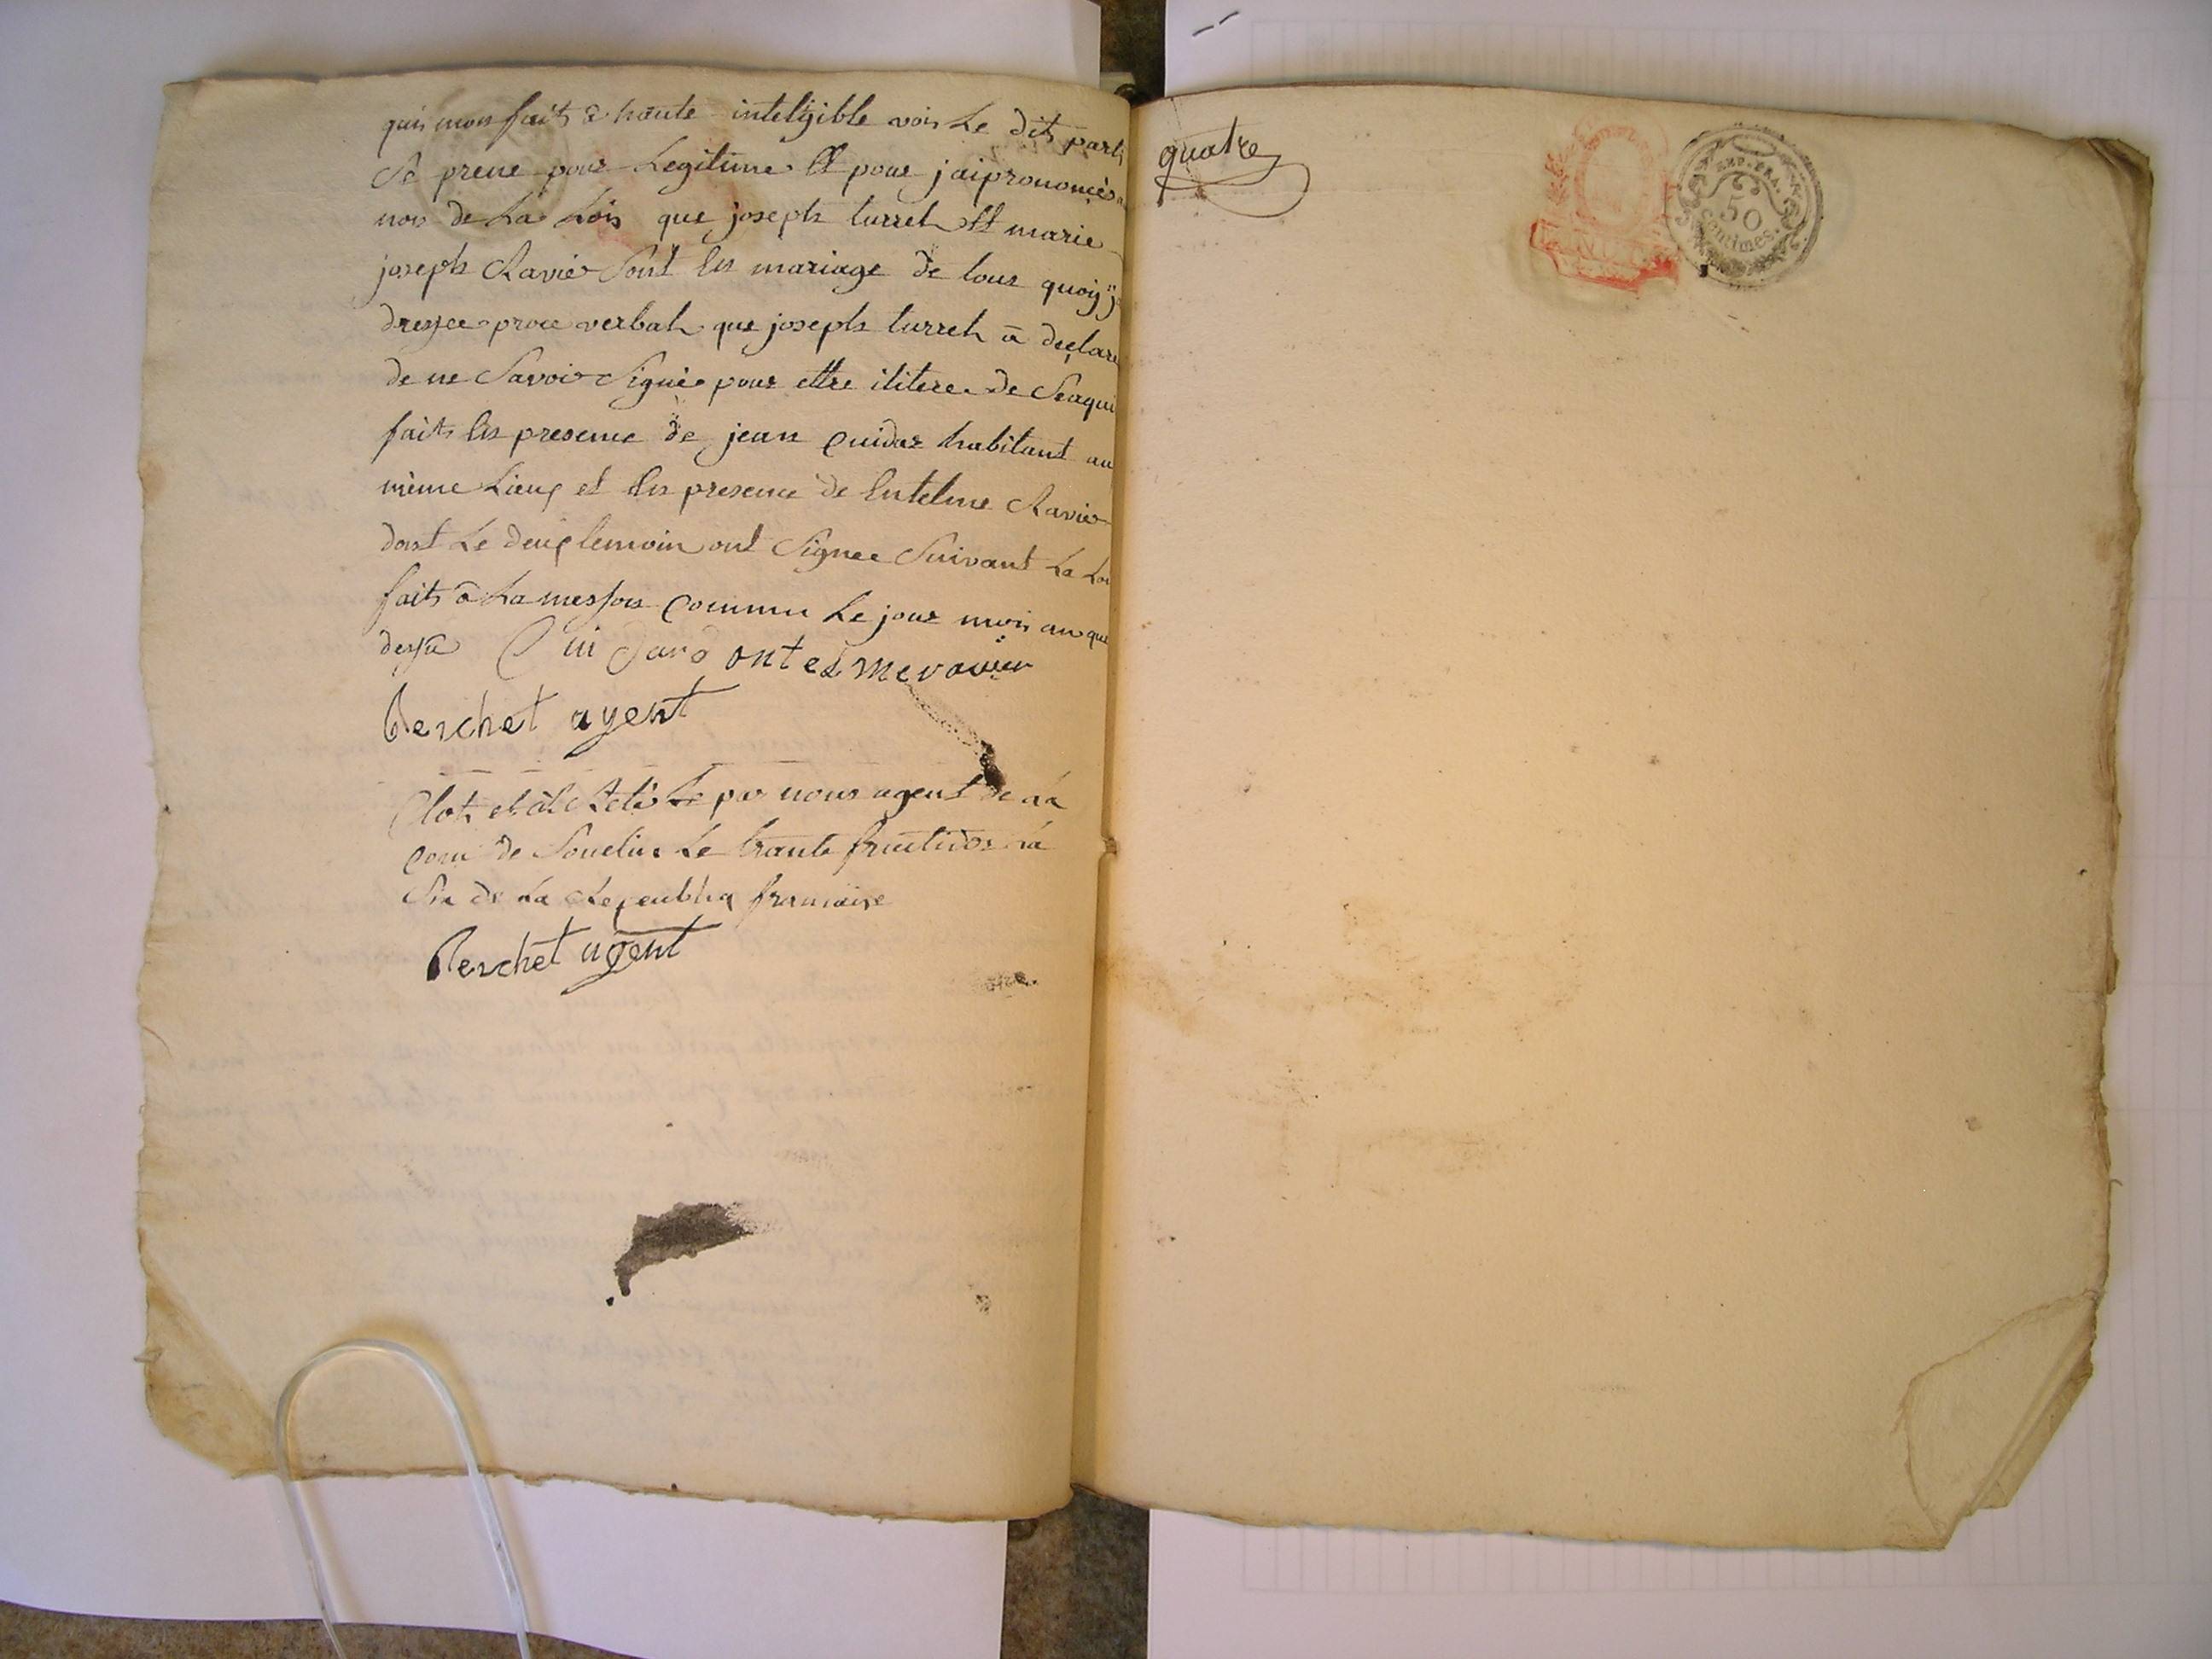 qui mon fait a haute intelijible vois Le dit parti
Se prene pour Legitime Et pour jaiprononcés a
non de La Lois que joseph turrel Et marie
joseph Ravie Sont En mariage de tous quoiy j
dressee proce verbal que joseph turrel a declare
de ne Savoir Signé pour ettre ilitere de Seaqui
fait En presence de jean Cuidar habitant au
mème Lieux et En presence de Entelme Ravie
dont Le deux temoin ont Signee Suivant La Loi
fait a Lamesson Commu Le jour mois an que
dessu Cuidard ontelme ravier
Perchet agent
Clot et par nous agent de La
com de Le trante fructidor La
Six de La Repeubliq francaise
Perchet agent
quatre
REP. FRA.
50
Centimes.